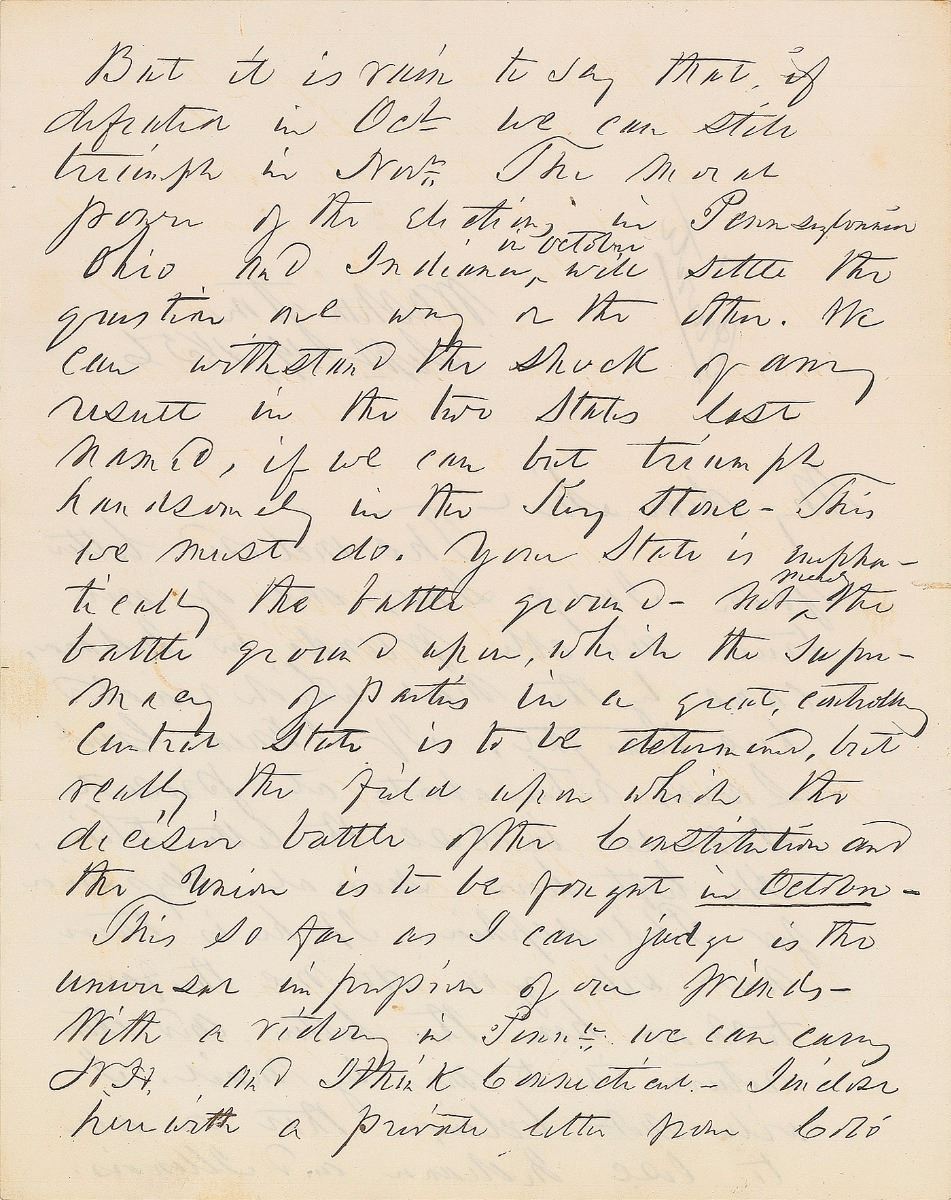 But it is vain to say that, if
defeated in Oct we can still
triumph in Novr. The moral
power of the elections, in Pennsylvania
Ohio and Indiana, in October will settle the
question one way or the other. We
can withstand the shock of any
result in the two States last
named, if we can but triumph
handsomely in the Key Stone - This
we must do. Your State is empha-
tically the battle ground - Not merely the
battle ground upon, which the supre-
macy of parties in a great, controlling
Central State is to be determined, but
really the field upon which the
decisive battle of the Constitution and
the Union is to be fought in October -
This so far as I can judge is the
universal impression of our friends -
With a victory in Penna. we can carry
N.H. and I think Connecticut. - I inclose
herewith a private letter from Colo